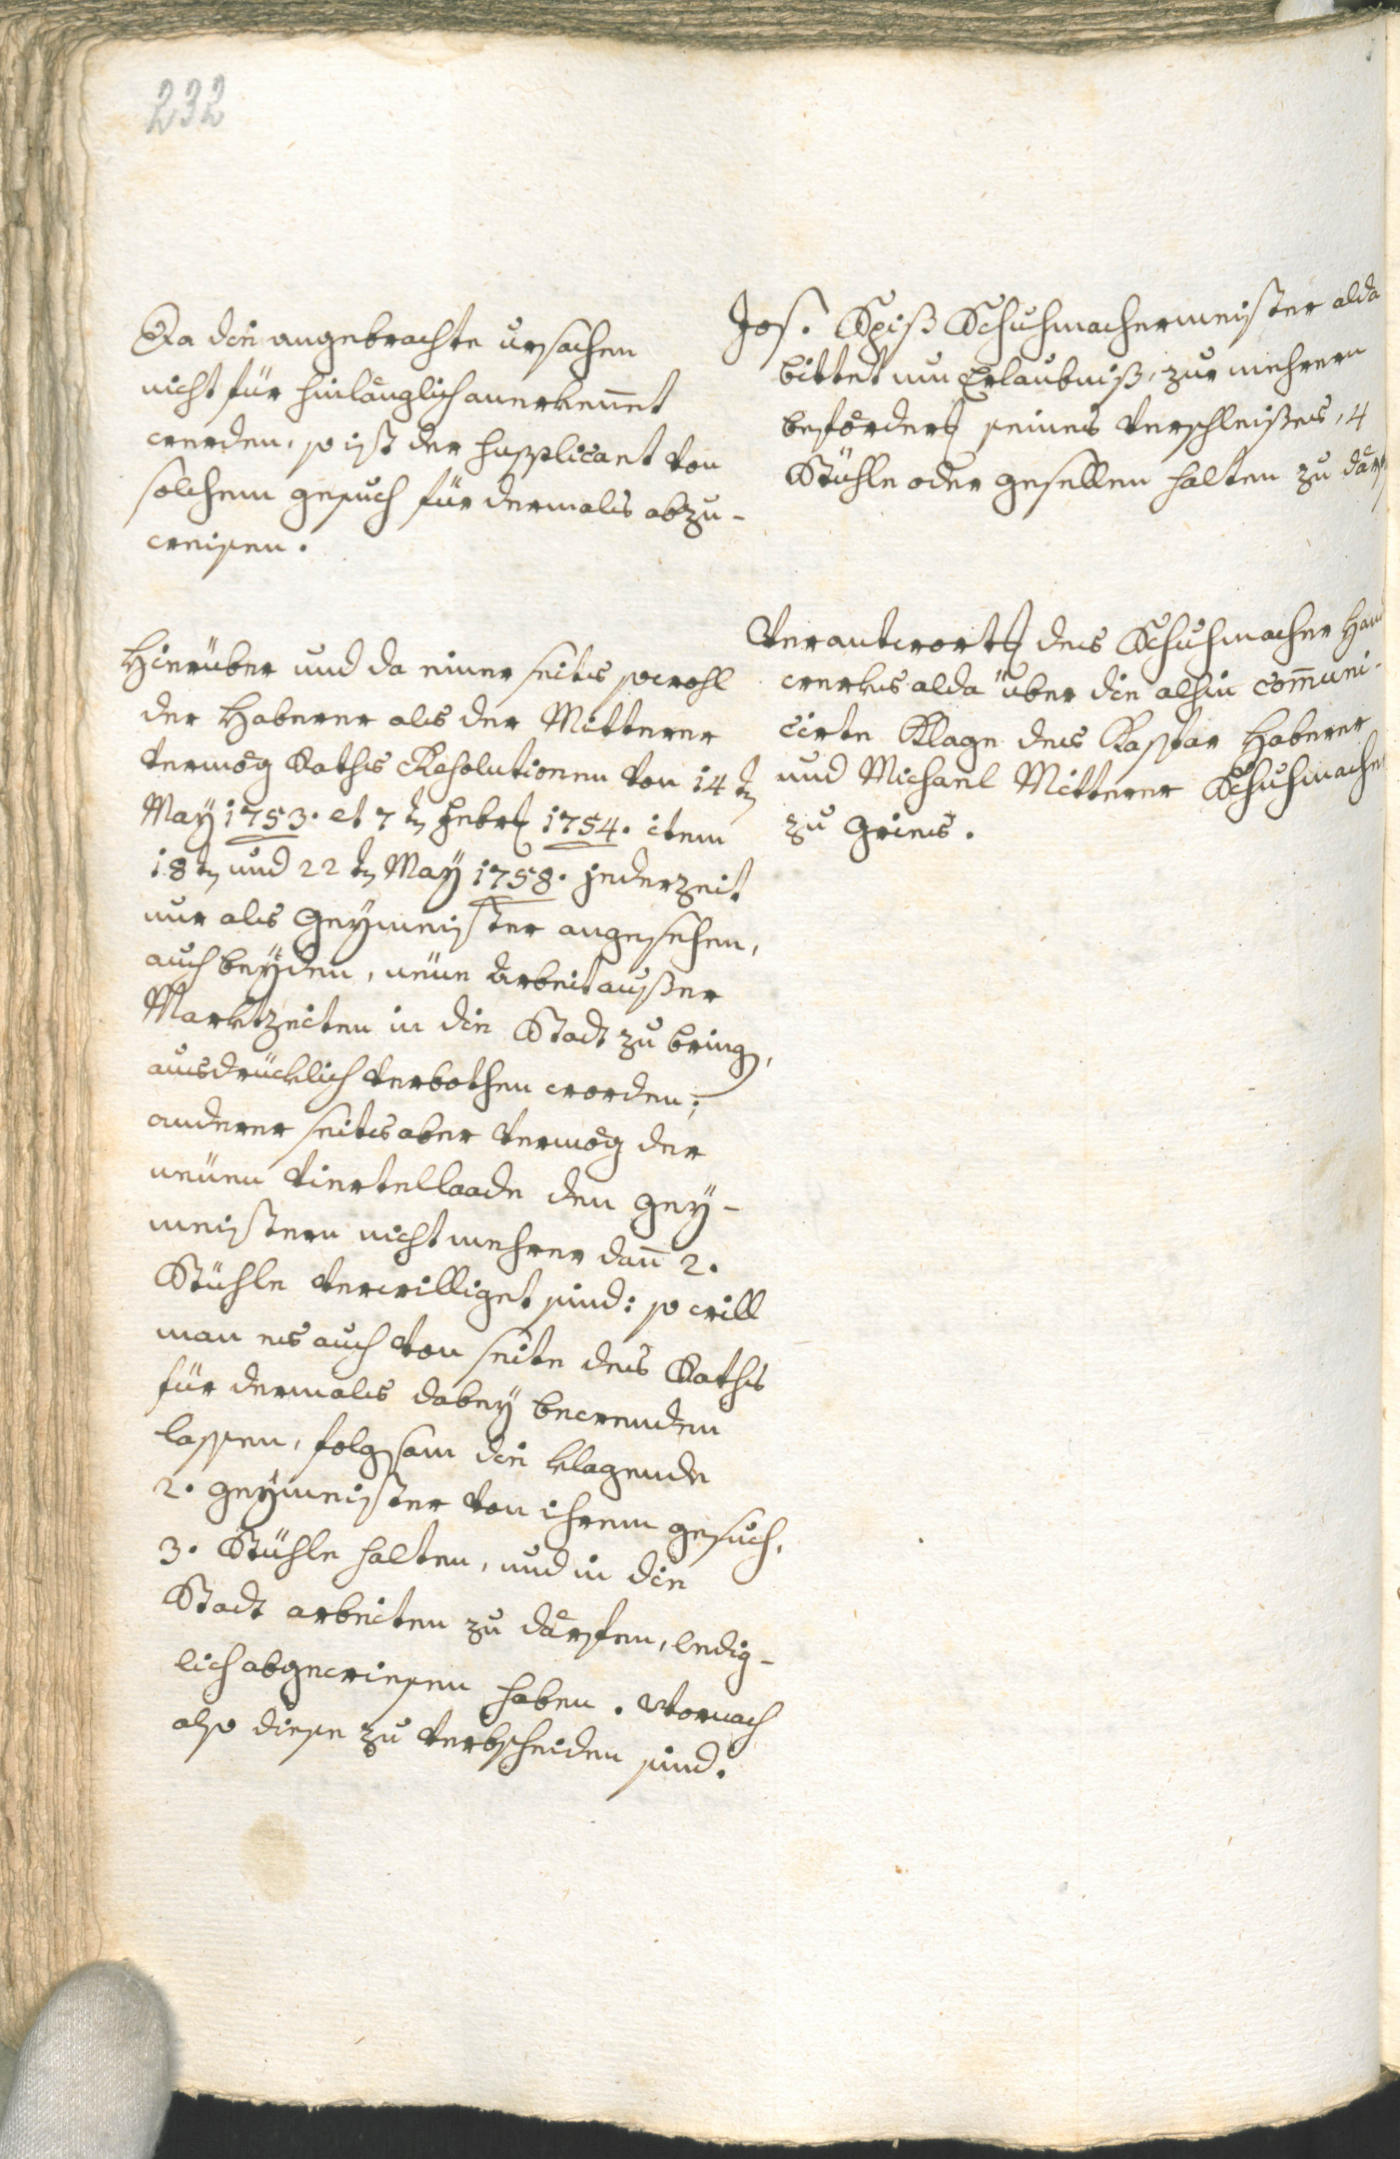 232
Da die angebrachte ursachen
nicht für hinlänglich anerkennet
werden, so ist der supplicant von
solchem gesuch für dermals abzu-
weisen.
Hierüber und da einer seits sowohl
der Haberer als der Mitterer
vermög Raths Resolutionen von 14 t͠
May 1753. et 7 t͠ Febr 1754. item
18 t͠ und 22 t͠ May 1758. jederzeit
nur als Geymeister angesehen,
auch beyden, neue Arbeit außer
Marktzeiten in die Stadt zu bring,
ausdrücklich verbothen worden;
anderer seits aber vermög der
neuen Viertellaade den gey-
meistern nicht mehrer dan̄ 2.
Stühle verwilliget sind: so will
man es auch von seite des Raths
für dermals dabey bewenden
lassen, folgsam die klagende
2. geymeister von ihrem gesuch,
3. Stühle halten, und in die
Stadt arbeiten zu därfen, ledig-
lich abgewiesen haben. Wornach
also diese zu verbscheiden sind.
Jos. Spiß Schuhmachermeister alda
bittet um Erlaubniß, zur mehrern
beförder seines Verschleißes, 4
Stühle oder gesellen halten zu därf
Verantwort des Schuhmacher Hand
werks alda über die alhin com̄uni-
cirte Klage des Kaspar Haberer
und Michael Mitterer Schuhmacher
zu Gries.